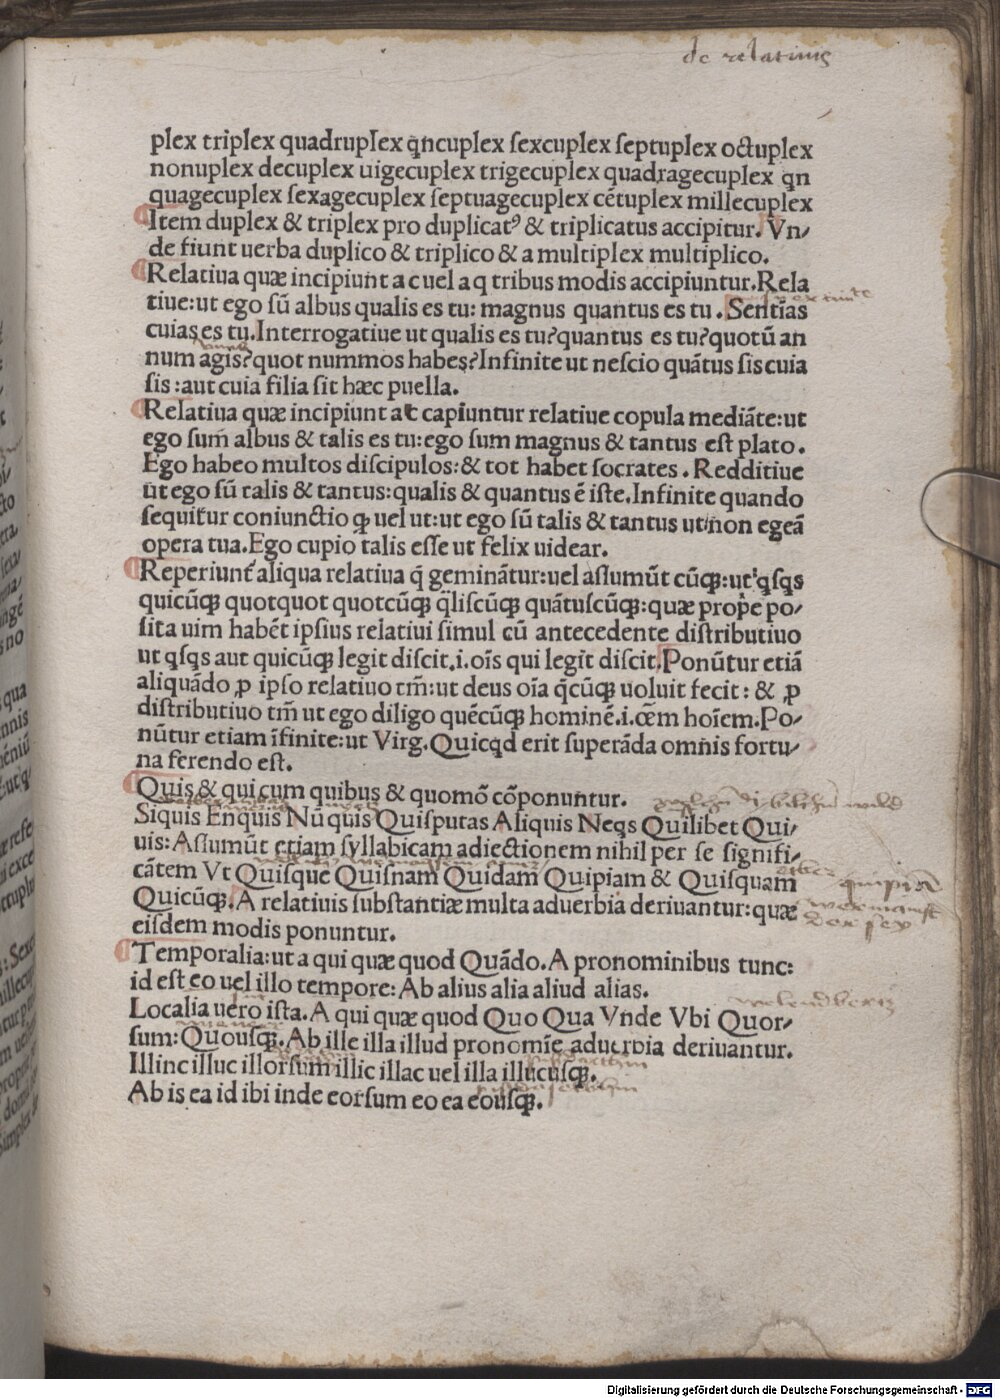 de relatiuis
plex triplex quadruplex qncuplex ſexcuplex ſeptuplex octuplex
nonuplex decuplex uigecuplex trigecuplex quadragecuplex qn
quagecuplex ſexagecuplex ſeptuagecuplex cētuplex millecuplex
Item duplex & triplex pro duplicatꝰ & triplicatus accipitur. Vn/
de fiunt uerba duplico & triplico & a multiplex multiplico.
Relatiua quæ incipiunt a c uel a q tribus modis accipiuntur. Rela
tiue:ut ego ſū albus qualis es tu: magnus quantus es tu. Sentias
cuias es tu. Interrogatiue ut qualis es tu? quantus es tu? quotū an
num agis? quot nummos habes? Infinite ut neſcio quātus ſis cuia
ſis: aut cuia filia ſit hæc puella.
Relatiua quæ incipiunt a t capiuntur relatiue copula mediāte: ut
ego ſum albus & talis es tu: ego ſum magnus & tantus eſt plato.
Ego habeo multos diſcipulos: & tot habet ſocrates. Redditiue
ut ego ſū talis & tantus: qualis & quantus ē iſte. Infinite quando
ſequitur coniunctio ꝙ uel ut: ut ego ſū talis & tantus ut non egeā
opera tua. Ego cupio talis eſſe ut felix uidear.
Reperiunt aliqua relatiua q̄ geminātur: uel aſſumūt cūqꝫ: ut qſqs
quicūqꝫ quotquot quotcūqꝫ q̄liſcūqꝫ quātuſcūqꝫ: quæ prope po/
ſita uim habēt ipſius relatiui ſimul cū antecedente diſtributiuo
ut qſqs aut quicūqꝫ legit diſcit. i. oīs qui legit diſcit. Ponūtur etiā
aliquādo ꝓ ipſo relatiuo tm̄: ut deus oīa q̄cūqꝫ uoluit fecit: & ꝓ
diſtributiuo tm̄ ut ego diligo quēcūqꝫ hominē. i. oēm hoīem. Po/
nūtur etiam īfinite: ut Virg. Quicqd erit ſuperāda omnis fortu/
na ferendo eſt.
Quis & qui cum quibus & quomō cōponuntur.
Siquis Enquis Nūquis Quiſputas Aliquis Neqs Quilibet Qui/
uis: Aſſumūt etiam ſyllabicam adiectionem nihil per ſe ſignifi/
cātem Vt Quiſque Quiſnam Quidam Quipiam & Quiſquam
Quicūqꝫ. A relatiuis ſubſtantiæ multa aduerbia deriuantur: quæ
eiſdem modis ponuntur.
Temporalia: ut a qui quæ quod Quādo. A pronominibus tunc:
id eſt eo uel illo tempore: Ab alius alia aliud alias.
Localia uero iſta. A qui quæ quod Quo Qua Vnde Vbi Quor/
ſum: Quouſqꝫ. Ab ille illa illud pronomīe aduerbia deriuantur.
Illinc illuc illorſum illic illac uel illa illucuſqꝫ.
Ab is ea id ibi inde eorſum eo ea eouſqꝫ.
Digitalisierung gefördert durch die Deutsche Forschungsgemeinschaft - DFG